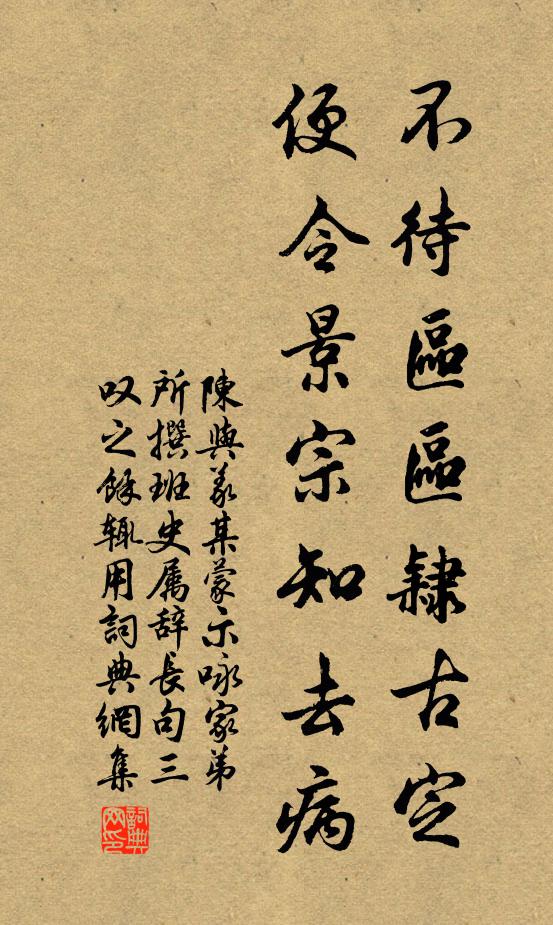 不待區區隸古定
便令景宗知去病
陳與義某蒙示咏家弟
所撰班史属辞長句三
叹之餘辄用詞典網集
詞典网印